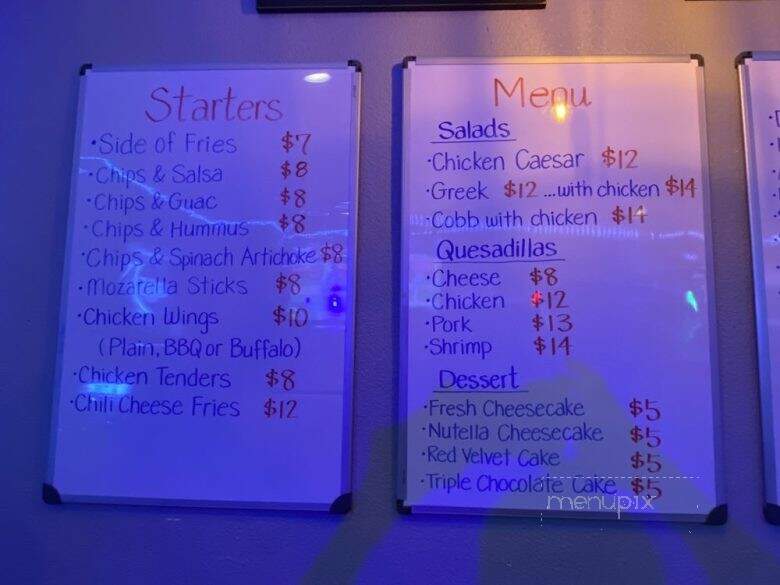 Starters
•Side of Fries $7
•Chips & Salsa $8
•Chips & Guac $8
•Chips & Hummus $8
•Chips & Spinach Artichoke $8
•Mozarella Sticks $8
•Chicken Wings $10
(Plain, BBQ or Buffalo)
•Chicken Tenders $8
•Chili Cheese Fries $12
Menu
Salads
•Chicken Caesar $12
•Greek $12 ...with chicken $14
•Cobb with chicken $14
Quesadillas
•Cheese $8
•Chicken $12
•Pork $13
•Shrimp $14
Dessert
•Fresh Cheesecake $5
•Nutella Cheesecake $5
•Red Velvet Cake $5
•Triple Chocolate Cake $5
menupix